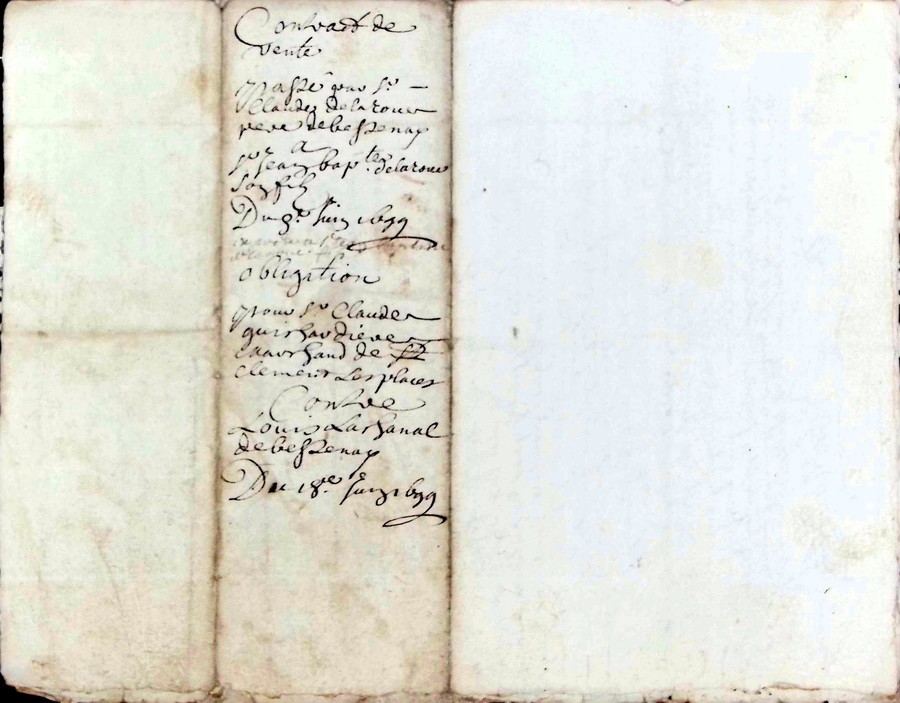 Contract de
vente
passé par Sr
Claude delaroue
pere de bessenay
A
Sr Jean bapte delaroue
son filz
Du 9e Juin 1699
obligation
pour Sr Claude
guichardiere
marchand de St
Clement Les places
Contre
Louis Lachanal
de bessenay
Du 18me Juin 1699